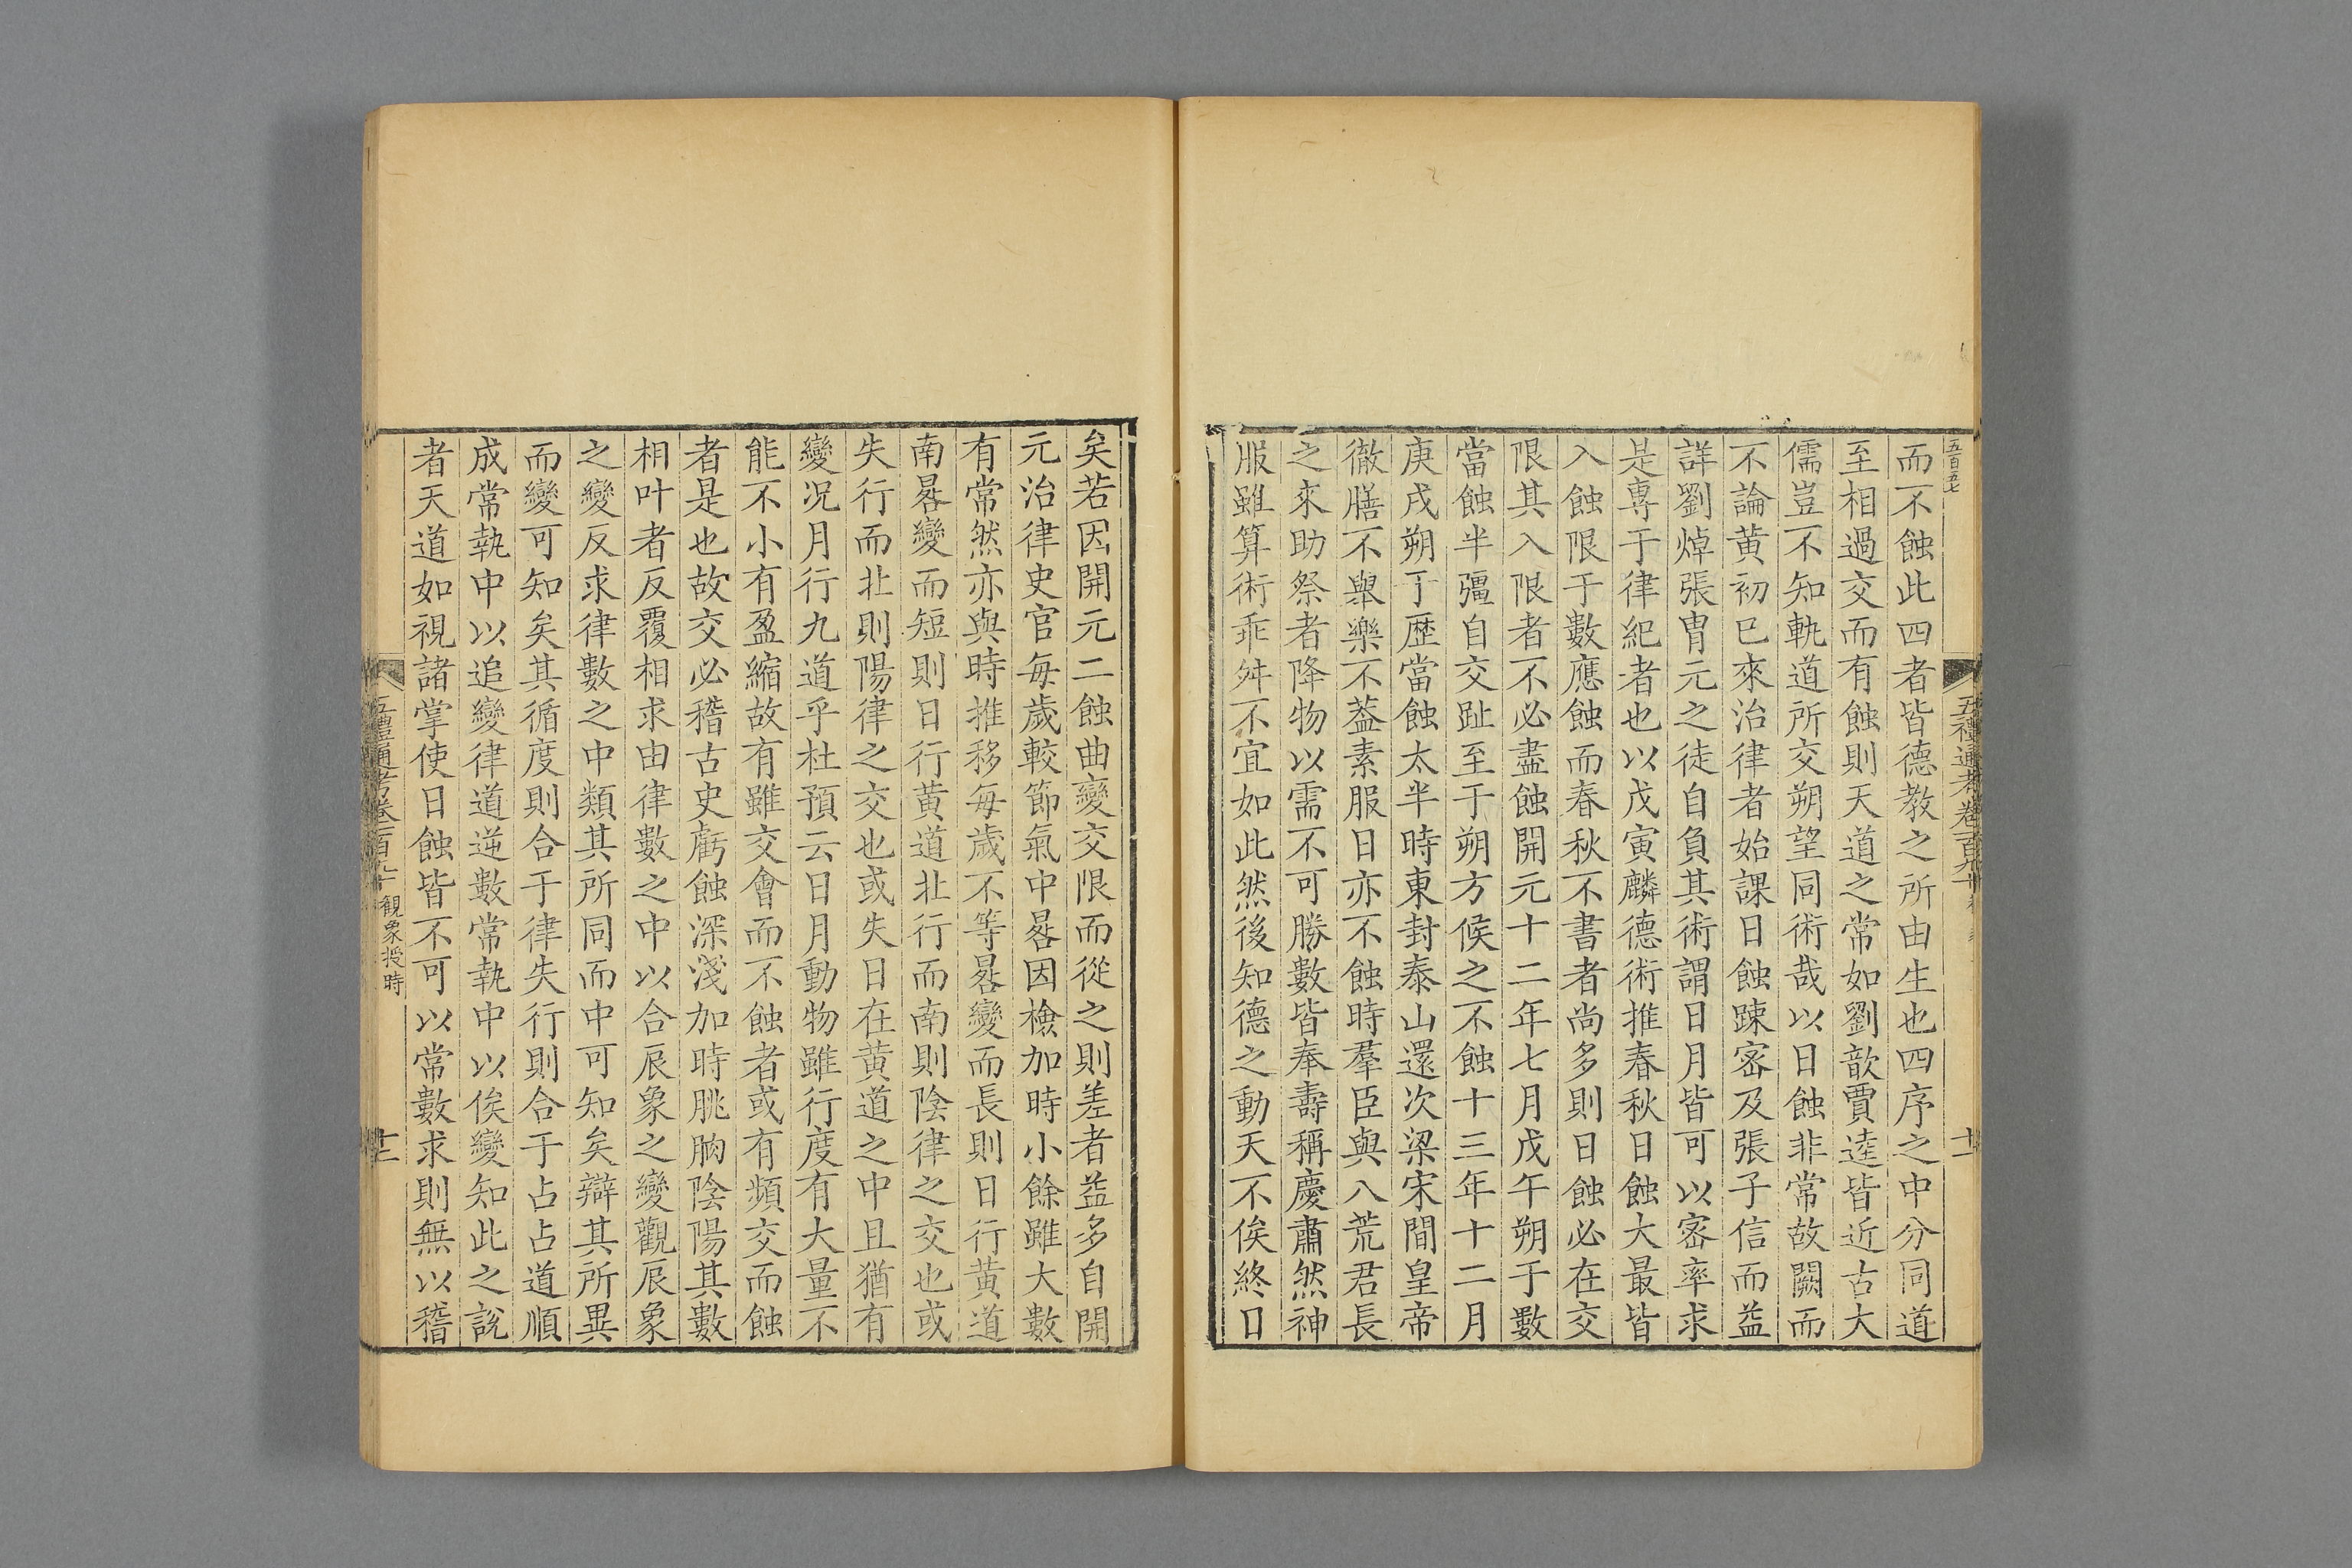 五百五七
五禮通考卷一百九十
十一
而不蝕此四者皆德教之所由生也四序之中分同道
至相過交而有蝕則天道之常如劉歆賈逵皆近古大
儒豈不知軌道所交朔望同術哉以日蝕非常故闕而
不論黃初已來治律者始課日蝕踈宻及張子信而益
詳劉焯張胄元之徒自負其術謂日月皆可以宻率求
是專于律紀者也以戊寅麟德術推春秋日蝕大最皆
入蝕限于數應蝕而春秋不書者尚多則日蝕必在交
限其入限者不必盡蝕開元十二年七月戊午朔于數
當蝕半彊自交趾至于朔方候之不蝕十三年十二月
庚戌朔于歷當蝕太半時東封泰山還次梁宋間皇帝
徹膳不舉樂不葢素服日亦不蝕時羣臣與八荒君長
之來助祭者降物以需不可勝數皆奉壽稱慶肅然神
服雖算術乖舛不宜如此然後知德之動天不俟終日
矣若因開元二蝕曲變交限而從之則差者益多自開
元治律史官每歲較節氣中晷因檢加時小餘雖大數
有常然亦與時推移每歲不等晷變而長則日行黃道
南晷變而短則日行黃道北行而南則陰律之交也或
失行而北則陽律之交也或失日在黃道之中且猶有
變况月行九道乎杜預云日月動物雖行度有大量不
能不小有盈縮故有雖交會而不蝕者或有頻交而蝕
者是也故交必稽古史虧蝕深淺加時朓朒陰陽其數
相叶者反覆相求由律數之中以合辰象之變觀辰象
之變反求律數之中類其所同而中可知矣辯其所異
而變可知矣其循度則合于律失行則合于占占道順
成常執中以追變律道逆數常執中以俟變知此之說
者天道如視諸掌使日蝕皆不可以常數求則無以稽
五禮通考卷一百九十 觀象授時
十二